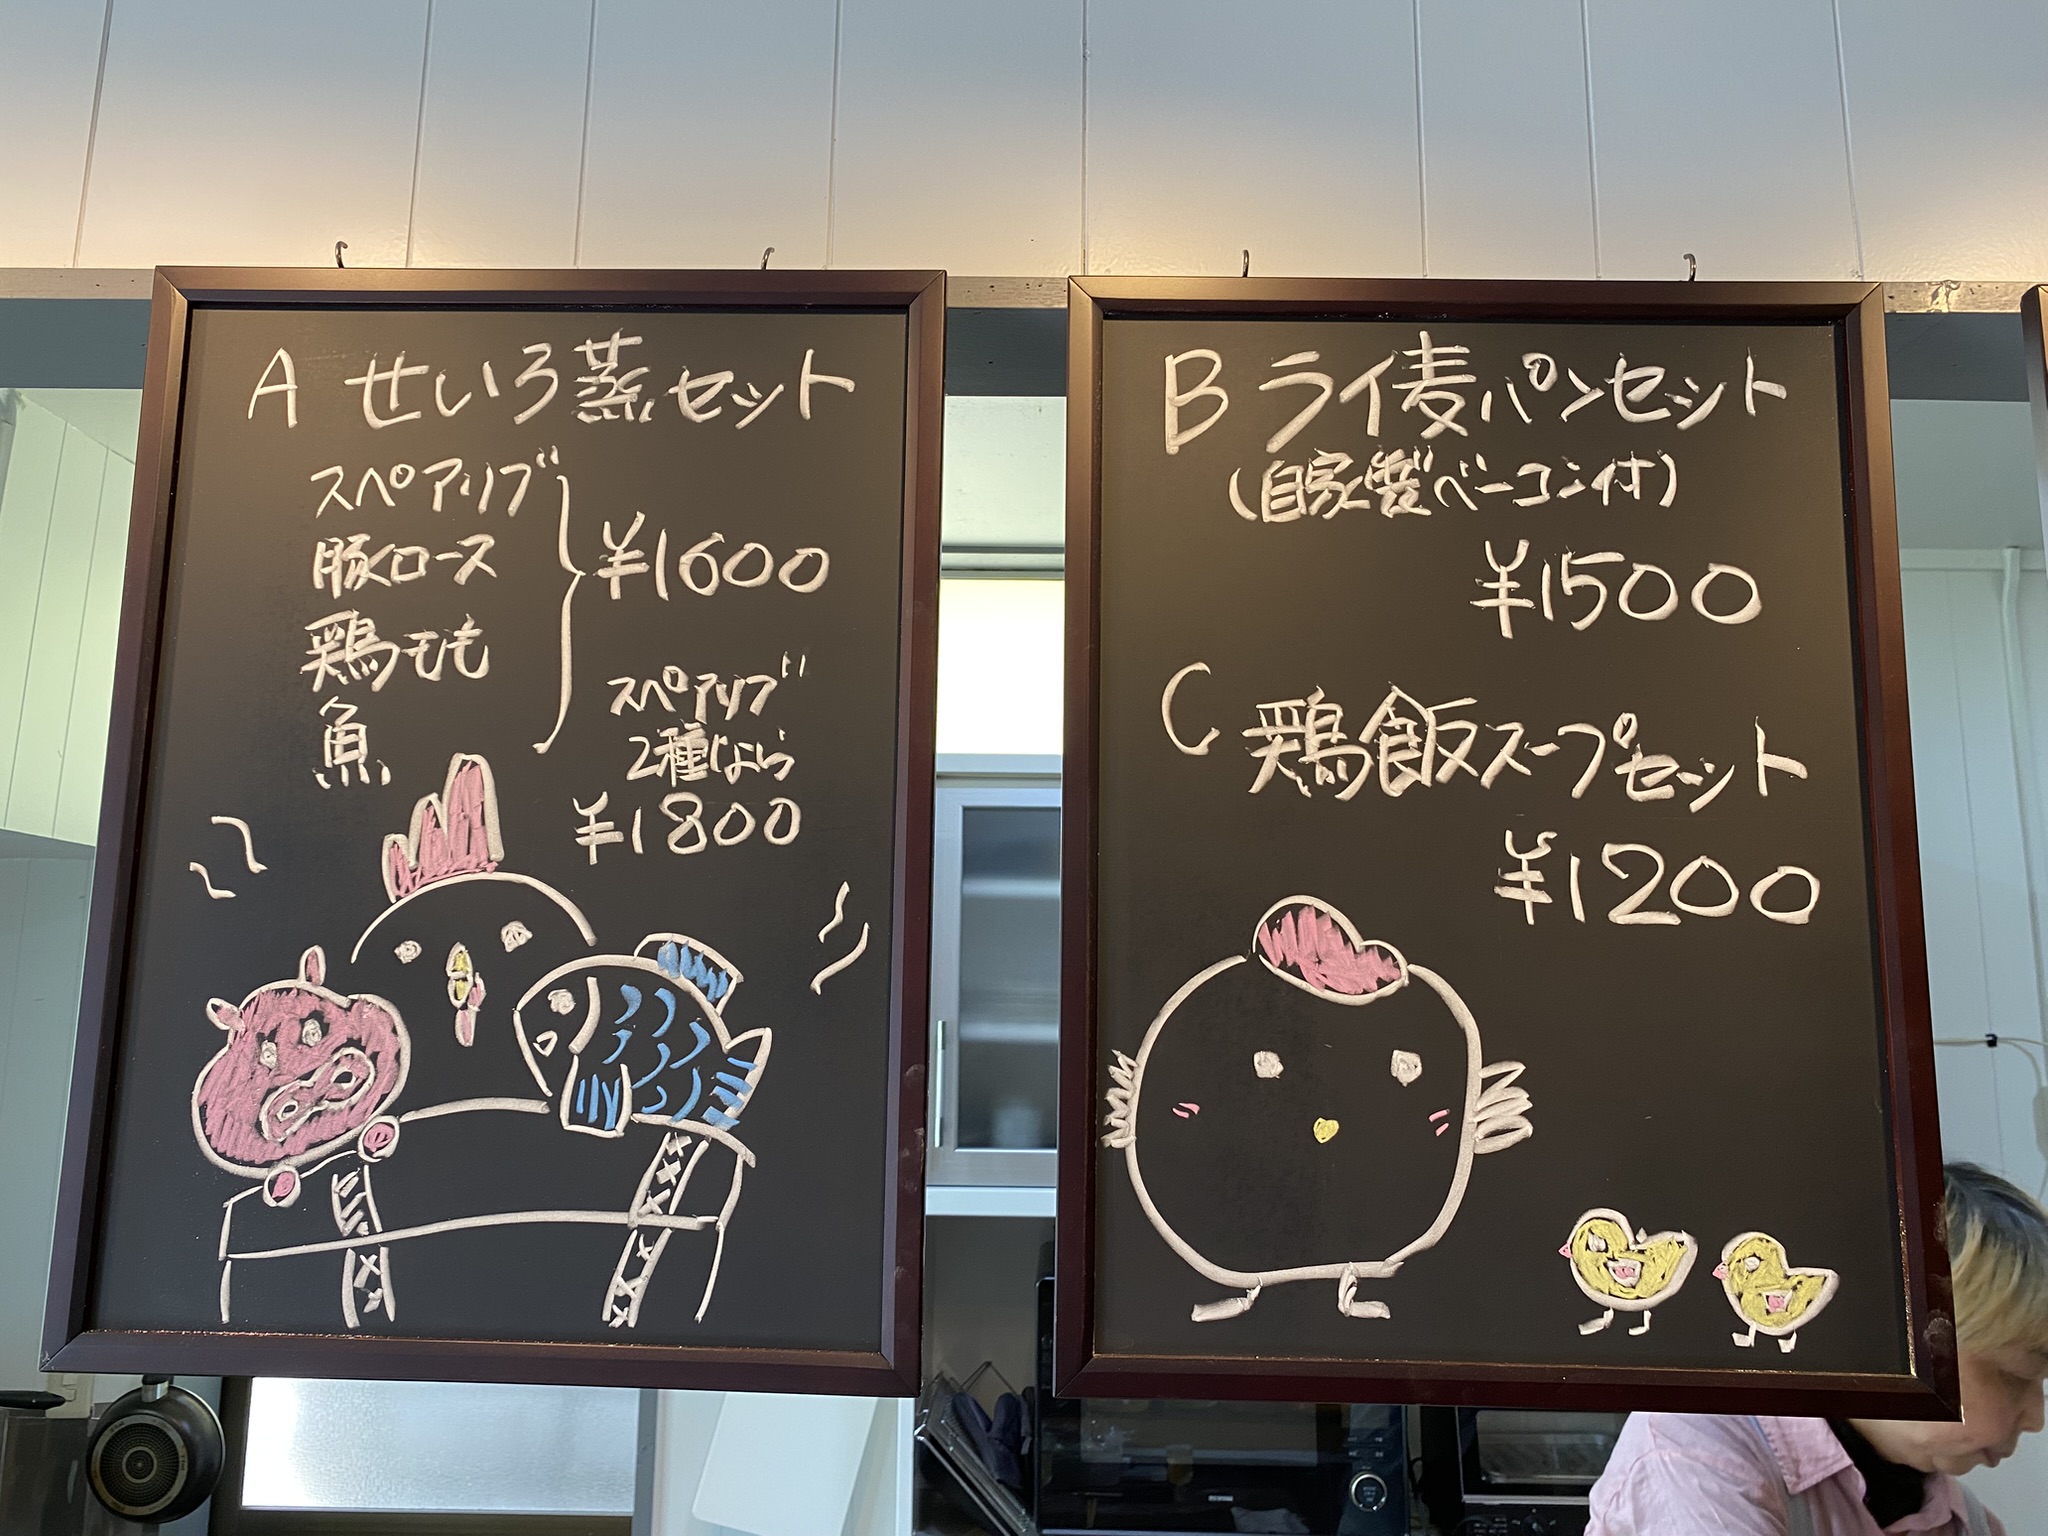 A せいろ蒸セット
スペアリブ
豚ロース
鶏モモ
魚
¥1600
スペアリブ
2種類なら
¥1800
B ライ麦パンセット
(自家製ベーコン付)
¥1500
C 鶏飯スープセット
¥1200